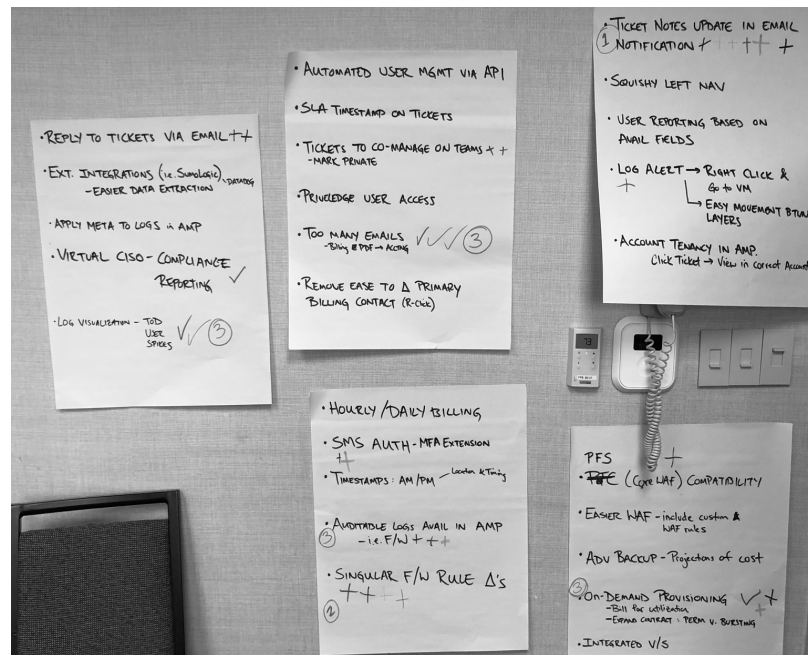 · REPLY TO TICKETS VIA EMAIL ++
· EXT. INTEGRATIONS (i.e. SumoLogic), DATADOG
- EASIER DATA EXTRACTION
· APPLY META TO LOGS in AMP
· VIRTUAL CISO - COMPLIANCE
REPORTING ✓
· LOG VISUALIZATION - TOD ✓✓ 3
USER
SPICES
· AUTOMATED USER MGMT VIA API
· SLA TIMESTAMP ON TICKETS
· TICKETS TO CO-MANAGE ON TEAMS + +
- MARK PRIVATE
· PRIVELEDGE USER ACCESS
· TOO MANY EMAILS ✓✓✓ 3
- Billing PDF → ACCTNG
· REMOVE EASE TO Δ PRIMARY
BILLING CONTACT (R-Click)
· TICKET NOTES UPDATE IN EMAIL
1 NOTIFICATION + + + + + +
· SQUISHY LEFT NAV
· USER REPORTING BASED ON
AVAIL FIELDS
· LOG ALERT → RIGHT CLICK &
+ Go to VM
→ EASY MOVEMENT BTWN
LAYERS
· ACCOUNT TENANCY IN AMP.
Click Ticket → View in correct Account
73
· HOURLY/DAILY BILLING
· SMS AUTH - MFA EXTENSION
++
· TIMESTAMPS: AM/PM - Location & Timing
· AUDITABLE LOGS AVAIL IN AMP
3 - i.e. F/W + + +
· SINGULAR F/W RULE Δ's
+ + + +
2
PFS +
· (Core WAF) COMPATIBILITY
· EASIER WAF - include custom &
WAF rules
· ADV BACKUP - Projections of cost
3 · ON-DEMAND PROVISIONING ✓ +
- Bill for utilization +
- EXPAND CONTRACT: PERM V. BURSTING
· INTEGRATED V/S